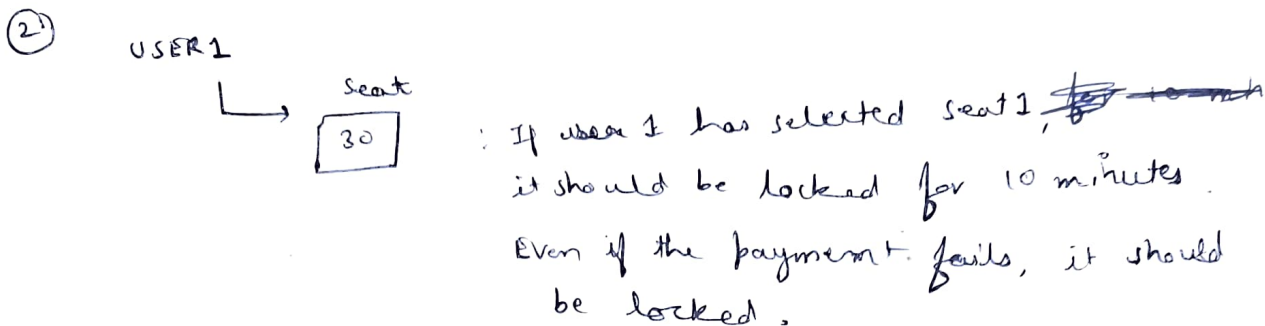 2
USER 1
Seat
30
: If user 1 has selected seat 1,
it should be locked for 10 minutes.
Even if the payment fails, it should
be locked.